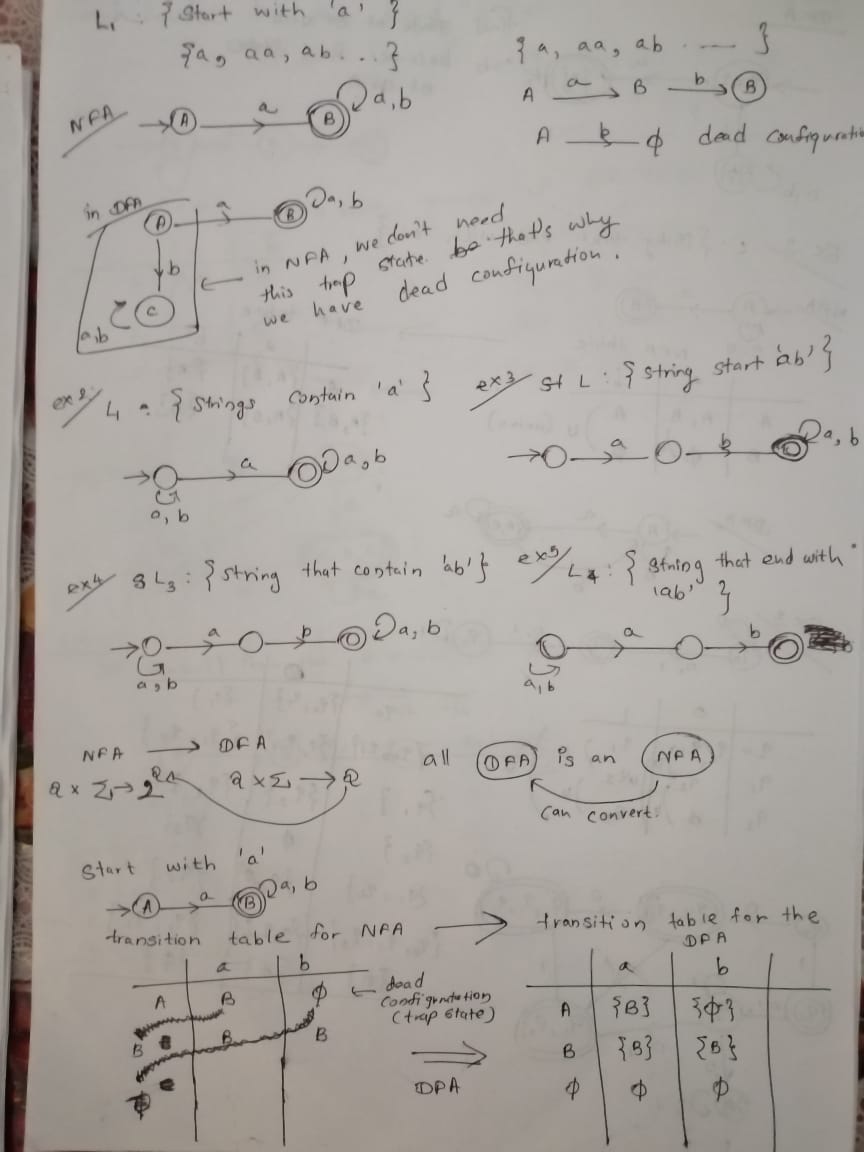 L₁ : { Start with 'a' }
{a, aa, ab...}
{ a, aa, ab ... }
A a B b B
A b ϕ dead configuratio
NFA A a B a, b
in DFA A a B a, b
b
C
a, b
in NFA, we don't need
this trap state. be that's why
we have dead configuration.
ex 2 L = { Strings contain 'a' }
a a, b
a, b
ex 3 st L : { string start 'ab' }
a b a, b
ex4 L₃ : { string that contain 'ab' }
a b a, b
a, b
ex5 L₄ : { string that end with
'ab' }
a b
a, b
NFA → DFA
Q × Σ → 2^Q Q × Σ → Q
all DFA is an NFA
can convert.
Start with 'a'
A a B a, b
transition table for NFA → transition table for the
DFA
a b
A B ϕ ← dead
configuration
(trap state)
B B B
ϕ
⇒
DFA
a b
A {B} {ϕ}
B {B} {B}
ϕ ϕ ϕ